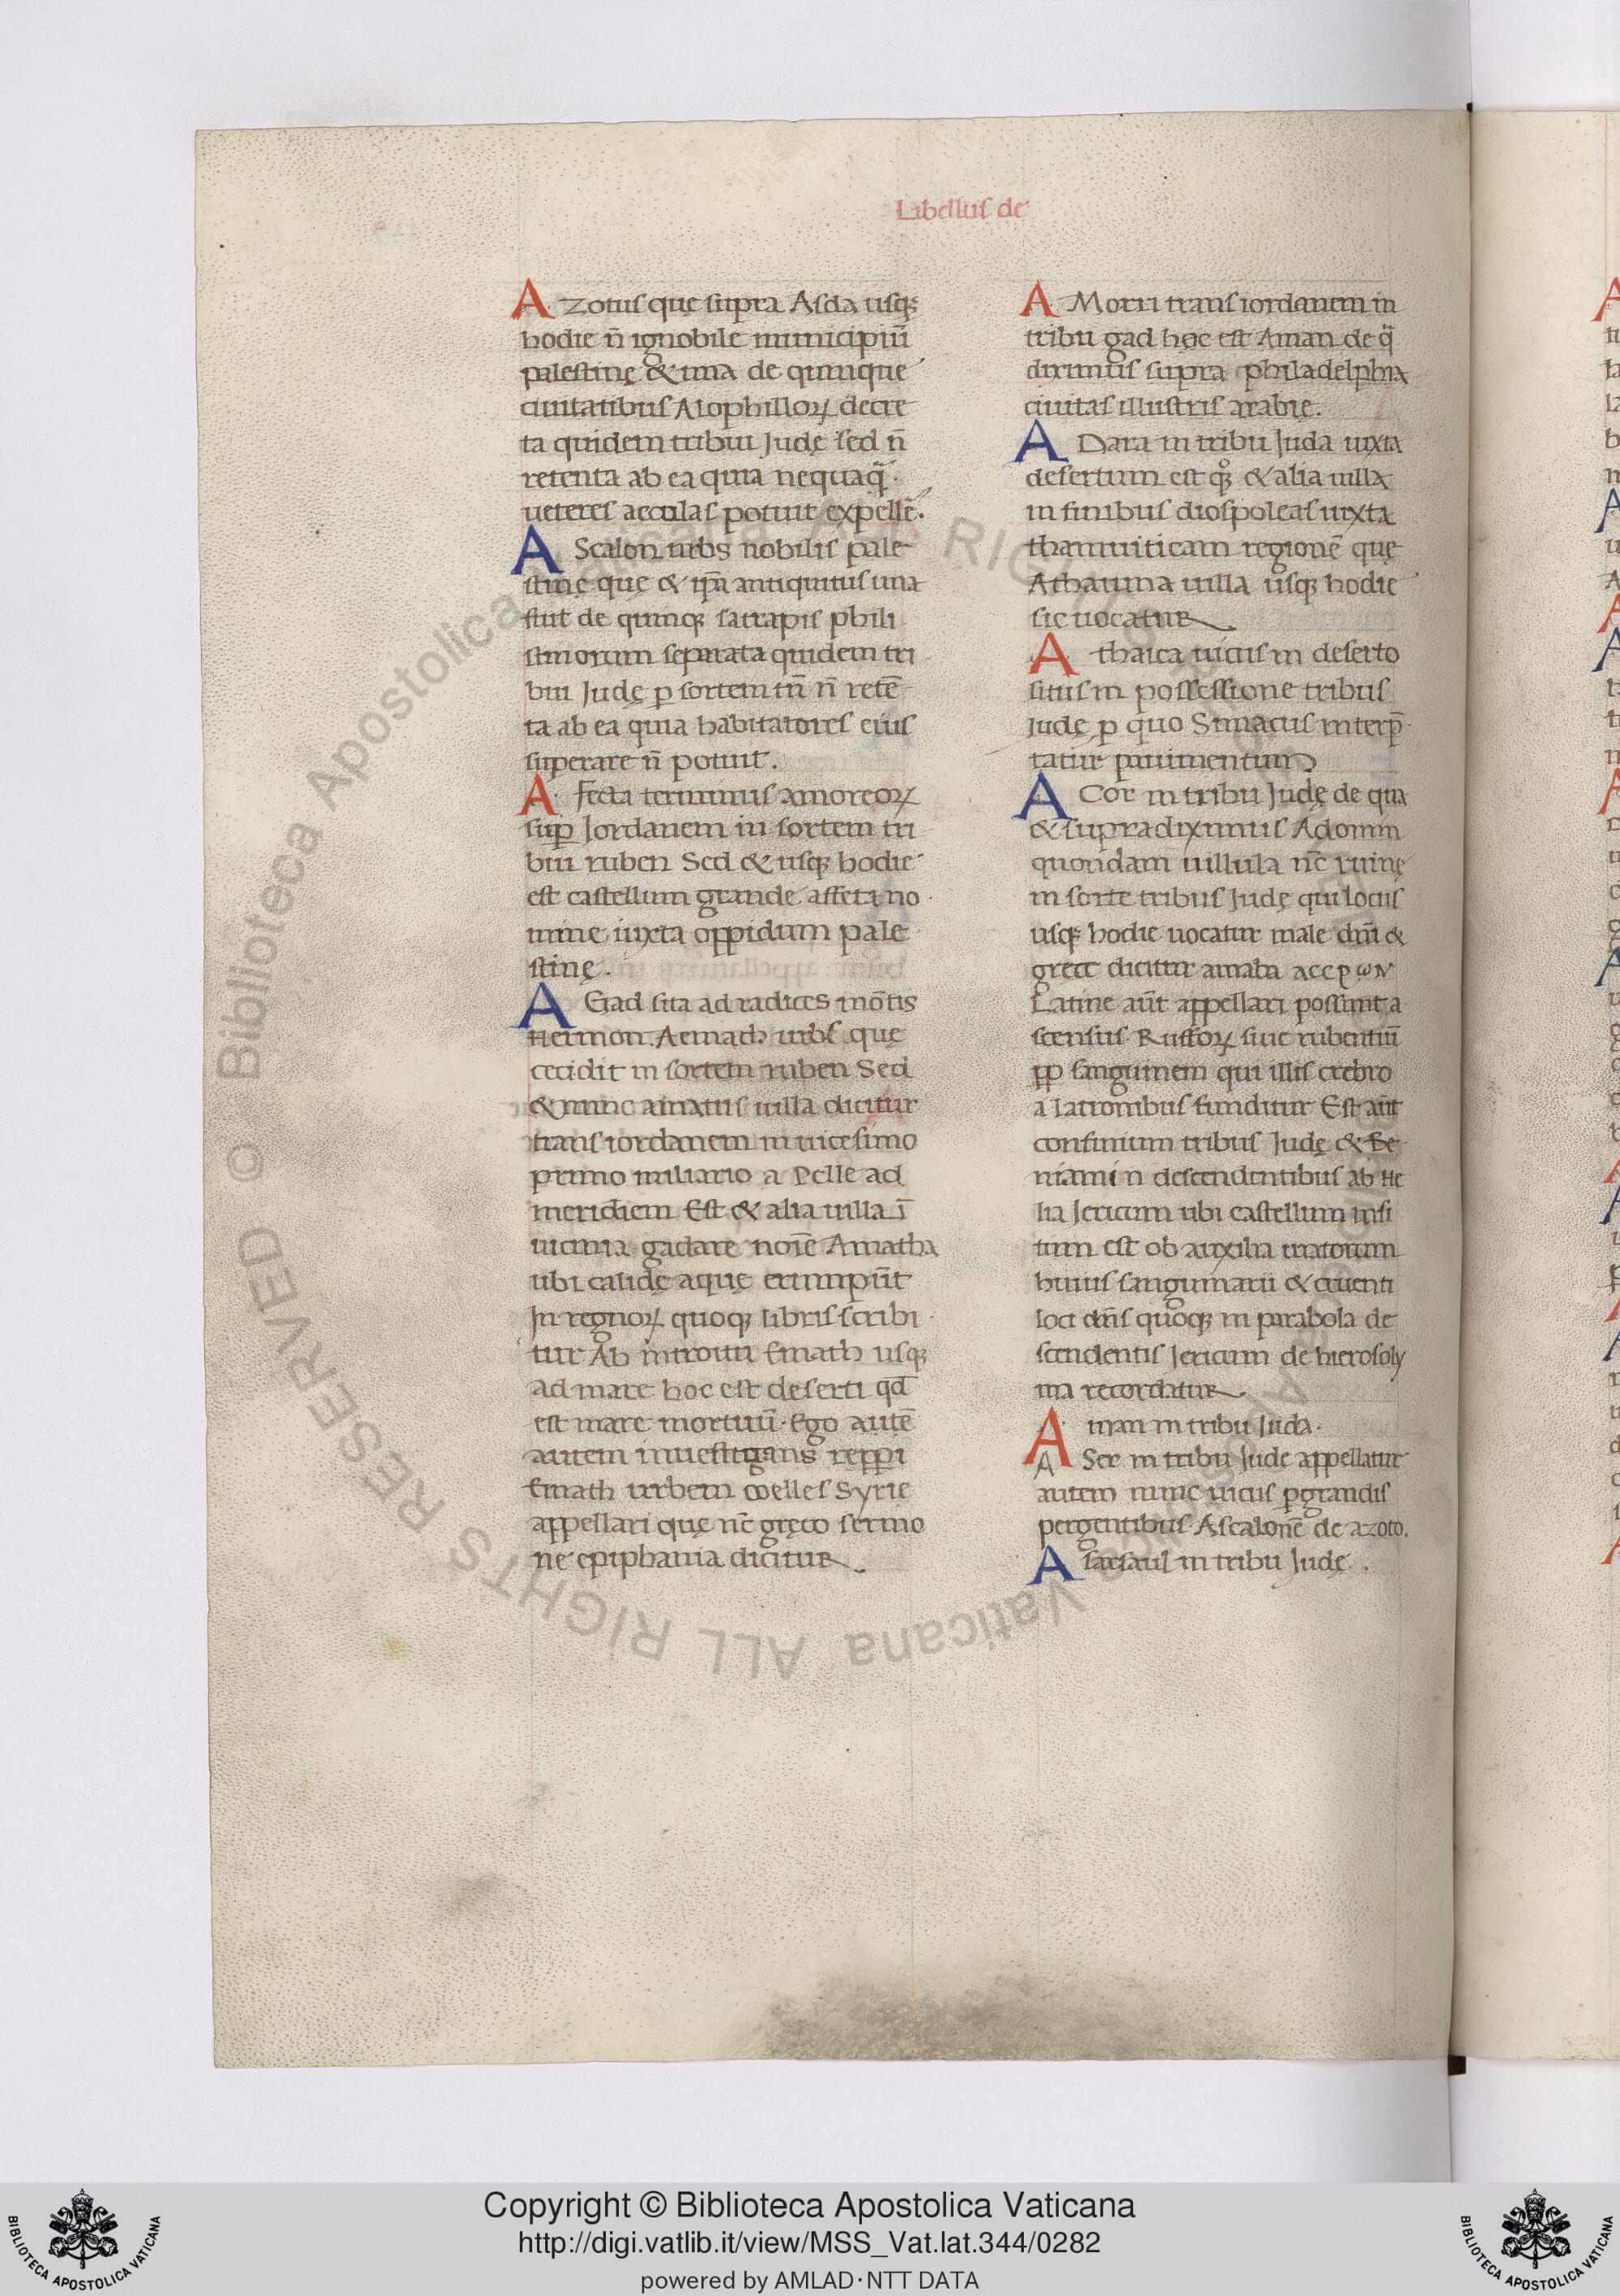 Libellus de
Azotus quę supra Asda usq;
hodie n̄ ignobile municipiū
palestinę & una de quinque
ciuitatibus Alophilloꝝ decre
ta quidem tribui Judę sed n̄
retenta ab ea quia nequaq̄
ueteres accolas potuit expellē.
AScalon urbs nobilis pale
stinę quę & ip̄a antiquitus una
fuit de quinq; satrapis phili
stinorum separata quidem tri
bui Judę ꝑ sortem tn̄ n̄ retē
ta ab ea quia habitatores eius
superare n̄ potuit.
Afecta terminus amoreoꝝ
suꝑ Jordanem in sortem tri
bui ruben Sed & usq; hodie
est castellum grande affeta no
mine iuxta oppidum pale
stinę.
AEiad sita ad radices mōtis
Hermon. Aemath urbs quę
cecidit in sortem ruben Sed
& nunc amatus uilla dicitur
trans iordanem in uicesimo
primo miliario a Pelle ad
meridiem Est & alia uilla ī
uicinia gadare noīe Amatha
ubi calidę aquę erumpūt
In regnoꝝ quoq; libris scribi
tur Ab introitu Emath usq;
ad mare hoc est deserti qd̄
est mare mortuū. Ego autē
autem inuestigans repperi
Emath urbem coelles Syrie
appellari quę nc̄ gręco sermo
ne epiphania dicitur.
AMorri trans iordanem in
tribu gad hęc est Aman de q̄
diximus supra philadelphia
ciuitas illustris arabię.
ADara in tribu Juda iuxta
desertum est q̊; & alia uilla
in finibus diospoleas iuxta
thamniticam regionē quę
Athauna uilla usq; hodie
sic uocatur
Athaica uicus in deserto
situs in possessione tribus
Judę ꝑ quo Simacus interp̄
tatur pauimentum
ACor in tribu Judę de qua
& supra diximus Adomin
quondam uillula nc̄ ruinę
in sorte tribus Judę qui locus
usq; hodie uocatur male dm̄ &
gręce dicitur anaba ΑCCΡωΝ
Latine aūt appellari possunt a
scensus Ruffoꝝ siue rubentiū
ꝓp sanguinem qui illis crebro
a latronibus funditur Est aūt
confinium tribus Judę & Be
niamin descendentibus ab He
lia Jericum ubi castellum insi
tum est ob auxilia uiatorum
huius sanguinarii & cruenti
loci dn̄s quoq; in parabola de
scendentis Jericum de hierosoly
ma recordatur
Aman in tribu Juda.
ASer in tribu Jude appellatur
autem nunc uicus ꝑgrandis
pergentibus Ascalonē de azoto.
Asarsaul in tribu Judę.
Copyright © Biblioteca Apostolica Vaticana
http://digi.vatlib.it/view/MSS_Vat.lat.344/0282
powered by AMLAD·NTT DATA
BIBLIOTECA APOSTOLICA VATICANA
BIBLIOTECA APOSTOLICA VATICANA
© Biblioteca Apostolica Vaticana ALL RIGHTS RESERVED